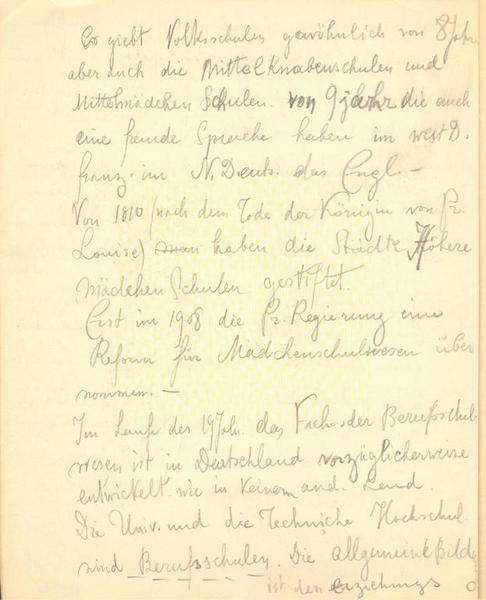 Es giebt Volksschulen gewöhnlich von 8 Jahr.
aber auch die Mittelknabenschulen und
Mittelmädchen Schulen. von 9 jahr die auch
eine fremde Sprache haben im west D.
franz. im N. Deut. das Engl. —
Von 1810 (nach dem Tode der Königin von Pr.
Louise) man haben die Städte Höhere
Mädchen Schulen gestiftet.
Erst im 1908 die Pr. Regierung eine
Reform für Mädchenschulwesen über
nommen. —
Im Laufe des 19 Jah. das Fach- oder Berufsschul
wesen ist in Deutschland vorzüglicherweise
entwickelt wie in keinem and. Land.
Die Univ. und die Techniche Hochschul
sind Berufsschulen. Die allgemeine Bild
ist den erziehungs